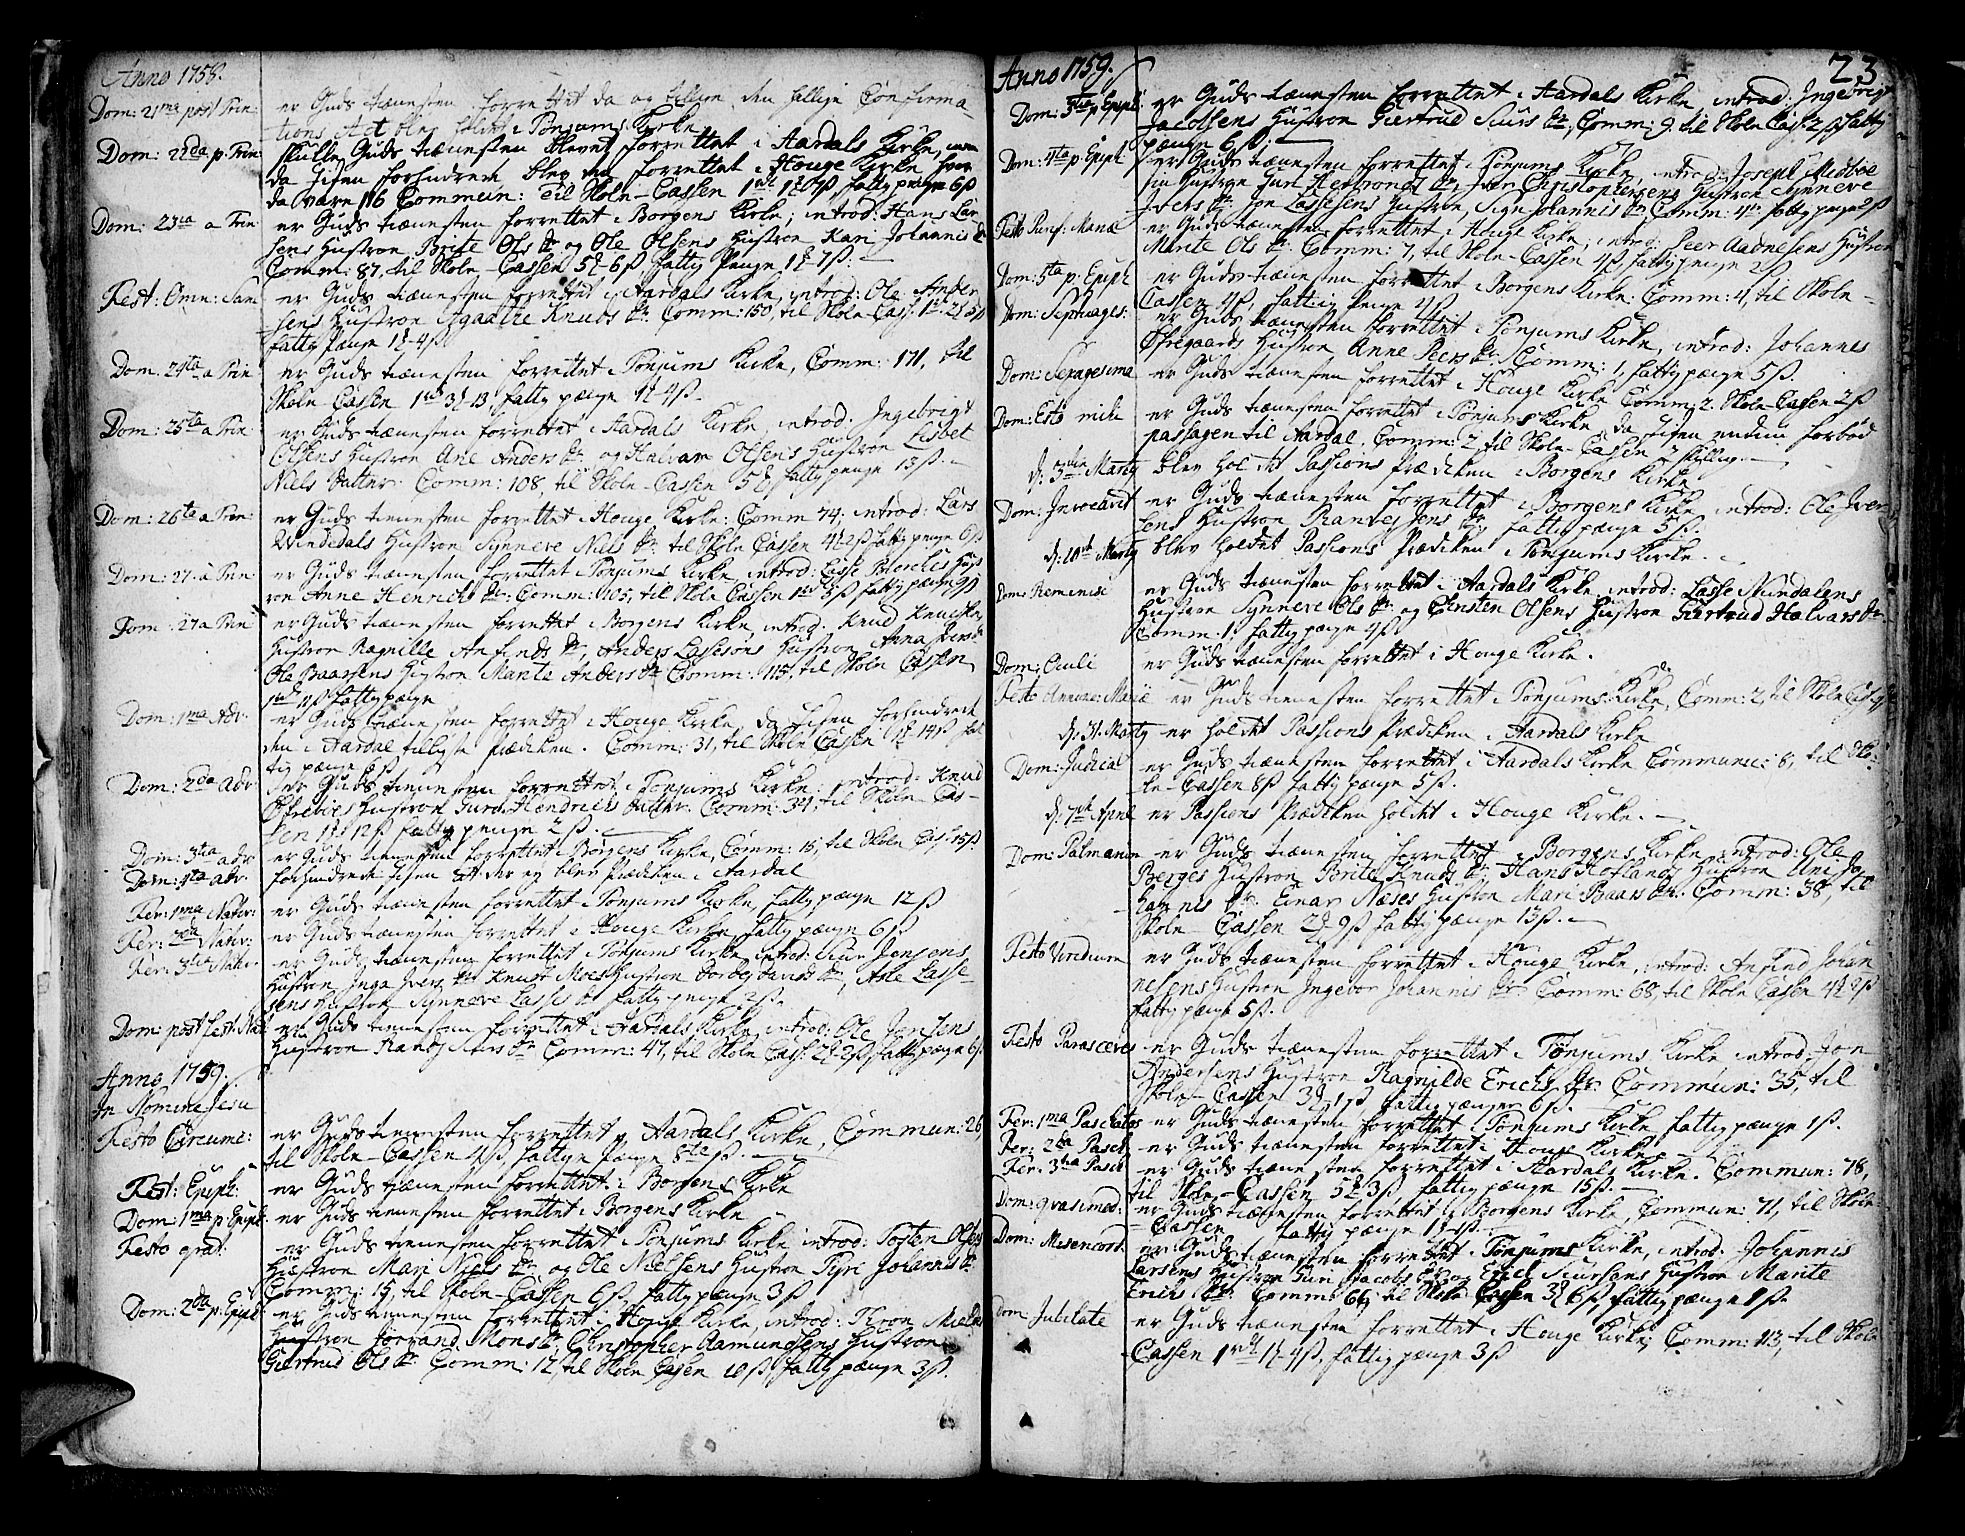 Anno 1758.
Dom: 21ma post Trin: er Guds tienesten forrettet da og den hellige Confirma
tions Act blev holdt i Tønjums Kirke
Dom: 22da p. Trin: skulle Guds tienesten blevet forrettet i Aardals Kirke, men
da Jisen forhindrede blev den forrettet i Houge Kirke hvor
da vare 116 Commun: Til Skole-Cassen fattig penge 6ß
Dom: 23tia a Trin er Guds tienesten forrettet i Borgens Kirke; introd: Hans Lar
sens Hustroe Brite Ols dr og Ole Olsens Hustroe Kari Johannis dr
Comm: 87, til Skole-Cassen 5ß fattig Penge
Fest: Omn: San er Guds tienesten forrettet i Aardals Kirke, introd: Ole Ander
sens Hustroe Agaathe Knuds dr Comm: 150, til Skole-Cass:
fattig Penge
Dom: 24ta a Trin er Guds tienesten forrettet i Tønjums Kirke, Comm: 171, til
Skole-Cassen fattig penge
Dom: 25ta a Trin: er Guds tienesten forrettet i Aardals Kirke, introd: Ingebrigt
Olsens Hustroe Ane Anders dr og Halvar Olsens Hustroe Lisbet
Niels Datter. Comm: 108, til Skole-Cassen fattig penge 13ß.
Dom: 26ta a Trin: er Guds tienesten forrettet i Houge Kirke: Comm 74, introd: Lars
Vindedals Hustroe Synneve Niels dr til Skole Cassen fattig penge 6ß
Dom: 27. a Trin: er Guds tienesten forrettet i Tønjums Kirke, introd: Hus
troe Anne Henrichs dr: Comm: 105, til Skole Cassen fattig penge 9ß
Dom: 27 a Trin: er Guds tienesten forrettet i Borgens Kirke, introd: Knud Knudsens
Hustroe Ragnille Anfinds dr, Anders Lassesøns Hustroe Anna Ivers dr
Ole Baarsens Hustroe Marite Anders dr Comm: 115, til Skole Cassen
fattig penge
Dom: 1ma Adv. er Guds tienesten forrettet i Houge Kirke, da Jisen forhindrede
den i Aardal tillyste Prædiken. Comm: 31, til Skole Cassen fat
tig penge 6ß
Dom: 2da Adv: er Guds tienesten forrettet i Tønjums Kirke: introd: Knud
Hustroe Guro Hendrics Datter. Comm: 34, til Skole-Cas-
sen fattig penge 2ß.
Dom: 3tia adv er Guds tienesten forrettet i Borgens Kirke, Comm: 15, til Skole Cass: 15ß
Dom: 4ta adv. forhindrede Jisen at der ey blev Prædiken i Aardal
Fer: 1ma Nativ: er Guds tienesten forrettet i Tønjums Kirke, fattig penge 12ß
Fer: 2da Nativ: er Guds tienesten forrettet i Houge Kirke, fattig penge 6ß
Fer: 3tia Nativ. er Guds tienesten forrettet i Tønjums Kirke introd: Siur Jensens
Hustroe Inga Ivers dr Knud Moes Hustroe dr, Ane Lasse
sens Hustroe Synneve Lasses dr fattig penge 2ß.
Dom: post fest. Nat: er Guds tienesten forrettet i Aardals Kirke, introd: Ole Jonsens
Hustroe Randj Siurs dr Comm: 47, til Skole Cass: fattig penge 6ß
Anno 1759.
In Nomine Jesu
Festo Circumc: er Guds tienesten forrettet i Aardals Kirke, Commun: 26
til Skole-Cassen 4ß, fattige Penge
Fest: Epiph: er Guds tienesten forrettet i Borgens Kirke
Dom: 1ma p Epiph: er Guds tienesten forrettet i Borgens Kirke
Festo er Guds tienesten forrettet i Tønjums Kirke introd: Tosten Olsens
Hustroe Mari Niels dr og Ole Nielsens Hustroe Johannis dr
Comm: 15, til Skole-Cassen 6ß, fattig penge 3ß
Dom: 2da p: Epiph: er Guds tienesten forrettet i Houge Kirke, introd:
Hustroe Mons dr, Christopher Aamundsens Hustroe
Giertrud Ols dr Comm: 12, til Skole Cassen 10ß, fattig penge 3ß.
23
Anno 1759.
Dom: 3tia p Epiph: er Guds tienesten forrettet i Aardals Kirke, introd: Ingebrigt
Jacobsens Hustroe Giertrud Siurs dr, Comm: 9. til Skole Cass: 2ß fattig
penge 6ß.
Dom: 4ta p. Epiph er Guds tienesten forrettet i Tønjums Kirke, introd: Joseph
Hustroe Christophersens Hustroe Synneve
Ivers dr Jon Lassesens Hustroe, Sigri Johannis dr, Comm: fattig penge 2ß
Festo Purif. Mariæ er Guds tienesten forrettet i Houge Kirke, introd: Peer Aadnesens Hustroe
Marite Ols dr: Comm: 7, til Skole-Cassen 4ß, fattig penge 2ß.
Dom: 5ta p. Epiph er Guds tienesten forrettet i Borgens Kirke: Comm: 4, til Skole-
Cassen 4ß, fattig penge 4ß
Dom: Septuages: er Guds tienesten forrettet i Tønjums Kirke, introd: Johannes
Øfregaards Hustroe Anne Peers dr. Comm: 1, fattig penge 5ß.
Dom: Sexagesima er Guds tienesten forrettet i Houge Kirke Comm: 2. Skole-Cassen 2ß
Dom: Esto mihi er Guds tienesten forrettet i Tønjums Kirke, da Jisen endnu forbød
passagen til Aardal. Comm: 2, til Skole-Cassen 2 skilling.
d: 3die Martij blev holdet Passions Prædiken i Borgens Kirke
Dom: Invocavit er Guds tienesten forrettet i Borgens Kirke introd: Ole Iver
sens Hustroe Jens dr. fattig penge 5ß.
d: 10de Martij blev holdet Passions Prædiken i Tønjums Kirke.
Dom: Reminisc er Guds tienesten forrettet i Aardals Kirke introd: Lasse Nundalens
Hustroe Synneve Ols dr og Christen Olsens Hustroe Giertrud Halvars dr
Comm. 1. fattig penge 4ß
Dom: Oculi er Guds tienesten forrettet i Houge Kirke.
Festo Annunc: Mariæ er Guds tienesten forrettet i Tønjums Kirke, Comm: 2, til Skole Cass
d: 31. Martij er holdet Passions Prædiken i Aardals Kirke
Dom: Judica er Guds tienesten forrettet i Aardals Kirke Communic: 8, til Sko-
le-Cassen 8ß fattig penge 5ß.
d: 7de April er Passions Prædiken holdet i Houge Kirke.
Dom: Palmarum er Guds tienesten forrettet i Borgens Kirke introd: Ole
Berges Hustroe Brite Knuds dr, Hans Hoflands Hustroe Uni Jo
hannis dr Einar Næses Hustroe Mari Baars dr. Comm: 38, til
Skole-Cassen fattig penge 13ß.
Festo Viridium er Guds tienesten forrettet i Houge Kirke, introd: Anfind Johan
nesens Hustroe Ingebor Johannis dr Comm: 68, til Skole Cassen
fattig penge 5ß.
Festo Parasceves er Guds tienesten forrettet i Tønjums Kirke introd: Jon
Andersens Hustroe Ragnilde Erichs dr Commun: 35, til
Skole-Cassen fattig penge 6ß.
Fer: 1ma Paschatos er Guds tienesten forrettet i Tønjums Kirke fattig penge 1ß.
Fer: 2da Pasch er Guds tienesten forrettet i Houge Kirke
Fer: 3tia Pasch er Guds tienesten forrettet i Aardals Kirke. Commun: 78,
til Skole-Cassen fattig penge 15ß.
Dom: qvasimod: er Guds tienesten forrettet i Borgens Kirke, Commun: 71, til Skole
Cassen fattig penge
Dom: Misericord: er Guds tienesten forrettet i Tønjums Kirke, introd. Johannis
Larsens Hustroe Guri Jacobs dr og Erich Siursens Hustroe Marite
Erichs dr. Comm: 66, til Skole Cassen fattig penge 1ß.
Dom Jubilate er Guds tienesten forrettet i Houge Kirke, Comm: 113, til Skole
Cassen fattig penge 3ß